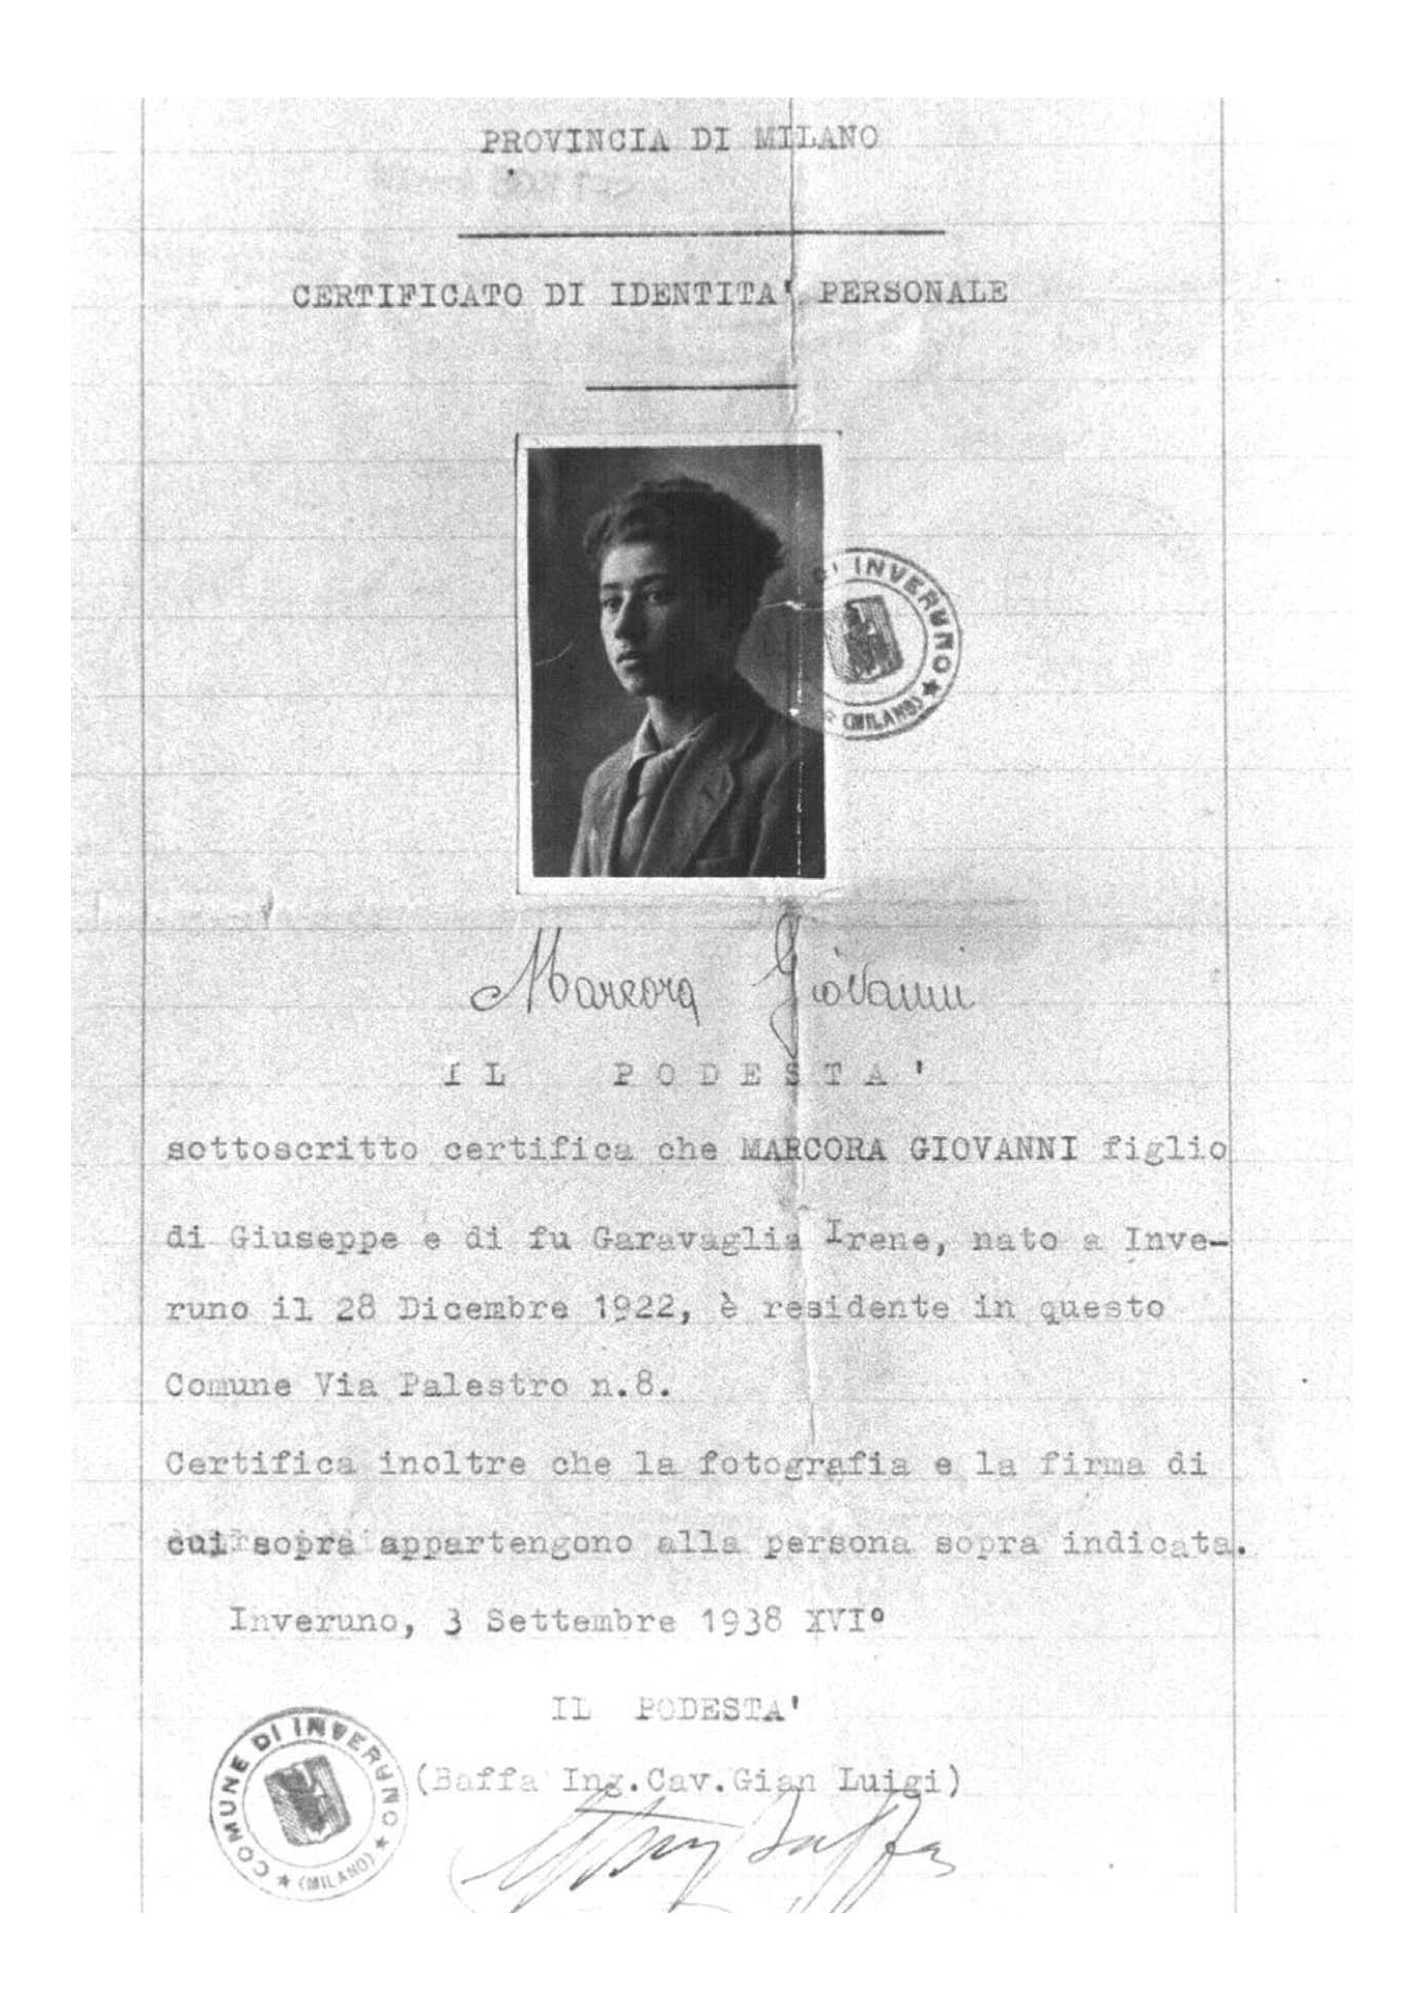 PROVINCIA DI MILANO
CERTIFICATO DI IDENTITA' PERSONALE
DI INVERUNO ★
(MILANO)
Marcora Giovanni
IL PODESTA'
sottoscritto certifica che MARCORA GIOVANNI figlio
di Giuseppe e di fu Garavaglia Irene, nato a Inve-
runo il 28 Dicembre 1922, è residente in questo
Comune Via Palestro n.8.
Certifica inoltre che la fotografia e la firma di
cui sopra appartengono alla persona sopra indicata.
Inveruno, 3 Settembre 1938 XVI°
IL PODESTA'
(Baffa Ing.Cav.Gian Luigi)
COMUNE DI INVERUNO ★
★ (MILANO)
Baffa